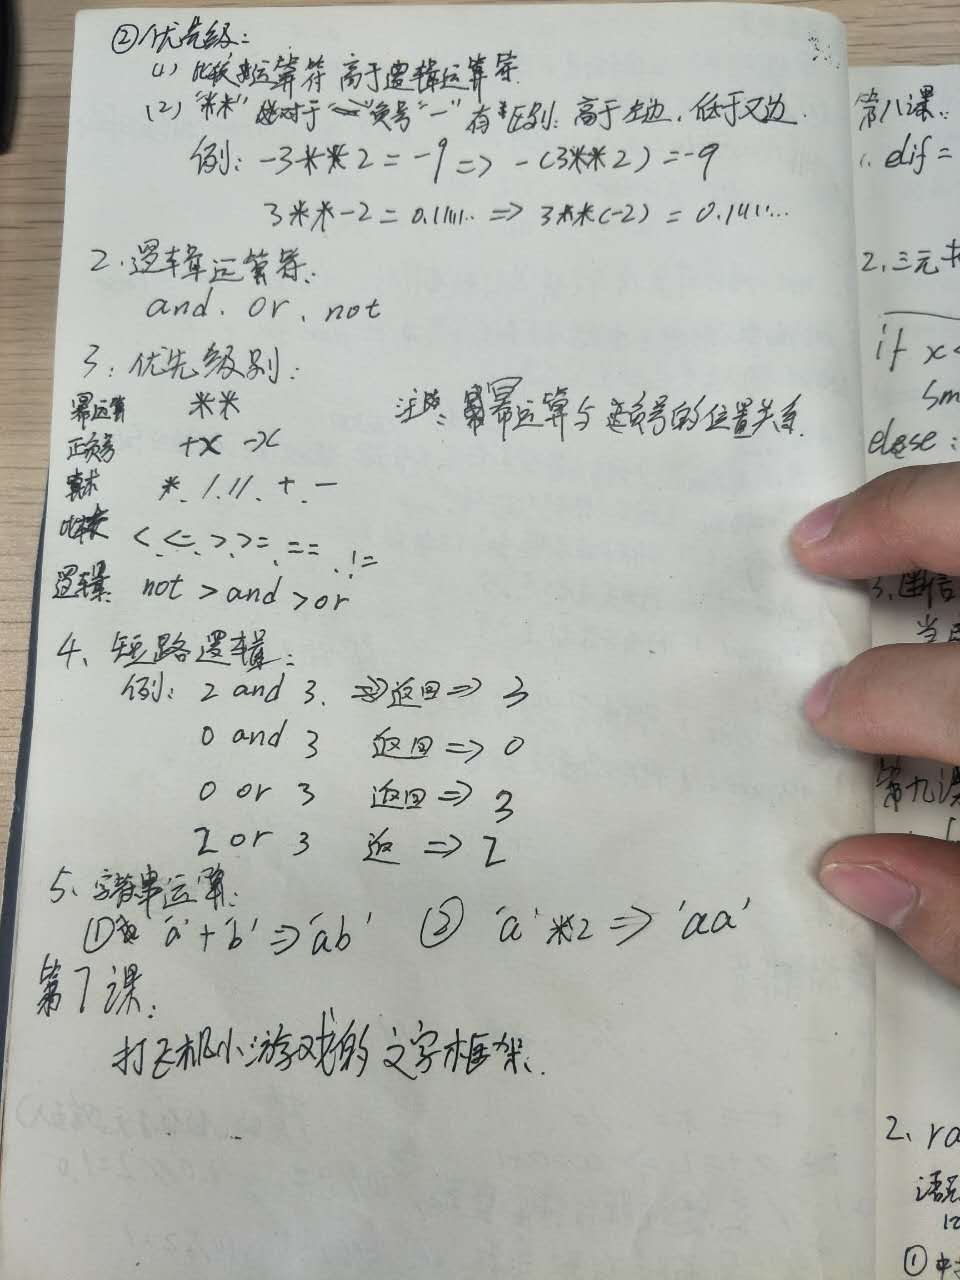 ②优先级:
(1) 比较运算符 高于逻辑运算符
(2) "**" 对于负号"-" 有区别: 高于左边, 低于又边.
例: -3**2 = -9 => -(3**2) = -9
3**-2 = 0.1111.. => 3**(-2) = 0.1111...
2.逻辑运算符:
and. or、not
3.优先级别:
幂运算 **
注意: 幂运算与负号的位置关系.
正负号 +x -x
算术 *. /. //. + . -
比较 <. <=. >. >=. ==. !=
逻辑 not > and > or
4、短路逻辑:
例: 2 and 3. 返回 => 3
0 and 3 返回 => 0
0 or 3 返回 => 3
2 or 3 返 => 2
5、字符串运算:
① 'a'+'b' => 'ab' ② 'a'*2 => 'aa'
第7课:
打飞机小游戏的文字框架.
第八课:
1. elif =
2.三元
if x<
Sm
else:
3.
当
第九课
2、ra
12
①